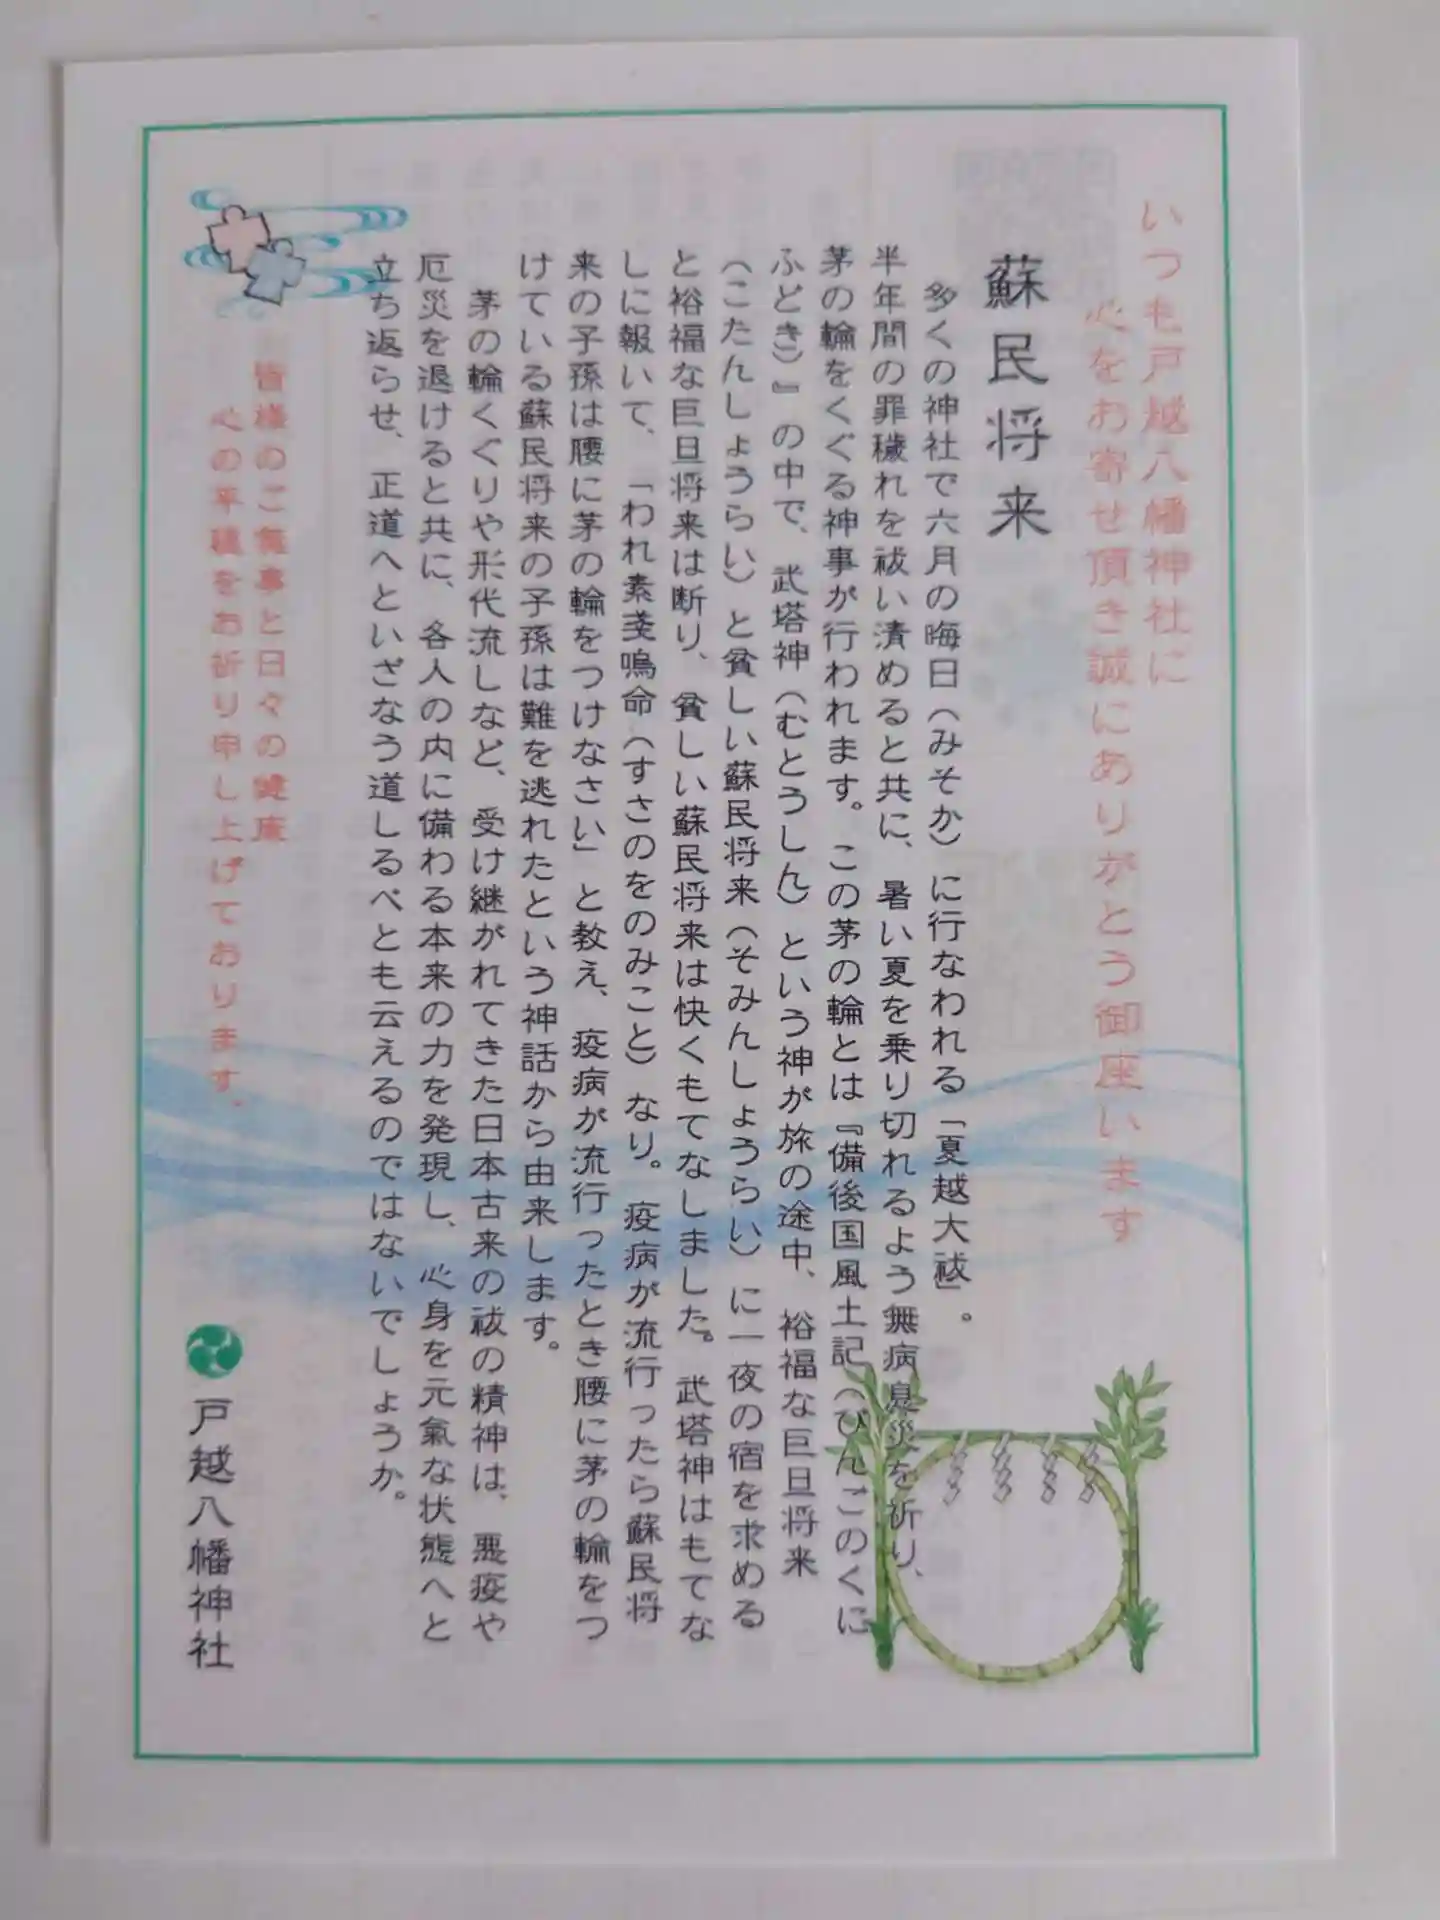 いつも戸越八幡神社に
心をお寄せ頂き誠にありがとう御座います
蘇民将来
多くの神社で六月の晦日（みそか）に行なわれる「夏越大祓」。
半年間の罪穢れを祓い清めると共に、暑い夏を乗り切れるよう無病息災を祈り、
茅の輪をくぐる神事が行われます。この茅の輪とは『備後国風土記（びんごのくに
ふどき）』の中で、武塔神（むとうしん）という神が旅の途中、裕福な巨旦将来
（こたんしょうらい）と貧しい蘇民将来（そみんしょうらい）に一夜の宿を求める
と裕福な巨旦将来は断り、貧しい蘇民将来は快くもてなしました。武塔神はもてな
しに報いて、「われ素戔嗚命（すさのをのみこと）なり。疫病が流行ったら蘇民将
来の子孫は腰に茅の輪をつけなさい」と教え、疫病が流行ったとき腰に茅の輪をつ
けている蘇民将来の子孫は難を逃れたという神話から由来します。
茅の輪くぐりや形代流しなど、受け継がれてきた日本古来の祓の精神は、悪疫や
厄災を退けると共に、各人の内に備わる本来の力を発現し、心身を元氣な状態へと
立ち返らせ、正道へといざなう道しるべとも云えるのではないでしょうか。
皆様のご無事と日々の健康
心の平穏をお祈り申し上げております。
戸越八幡神社